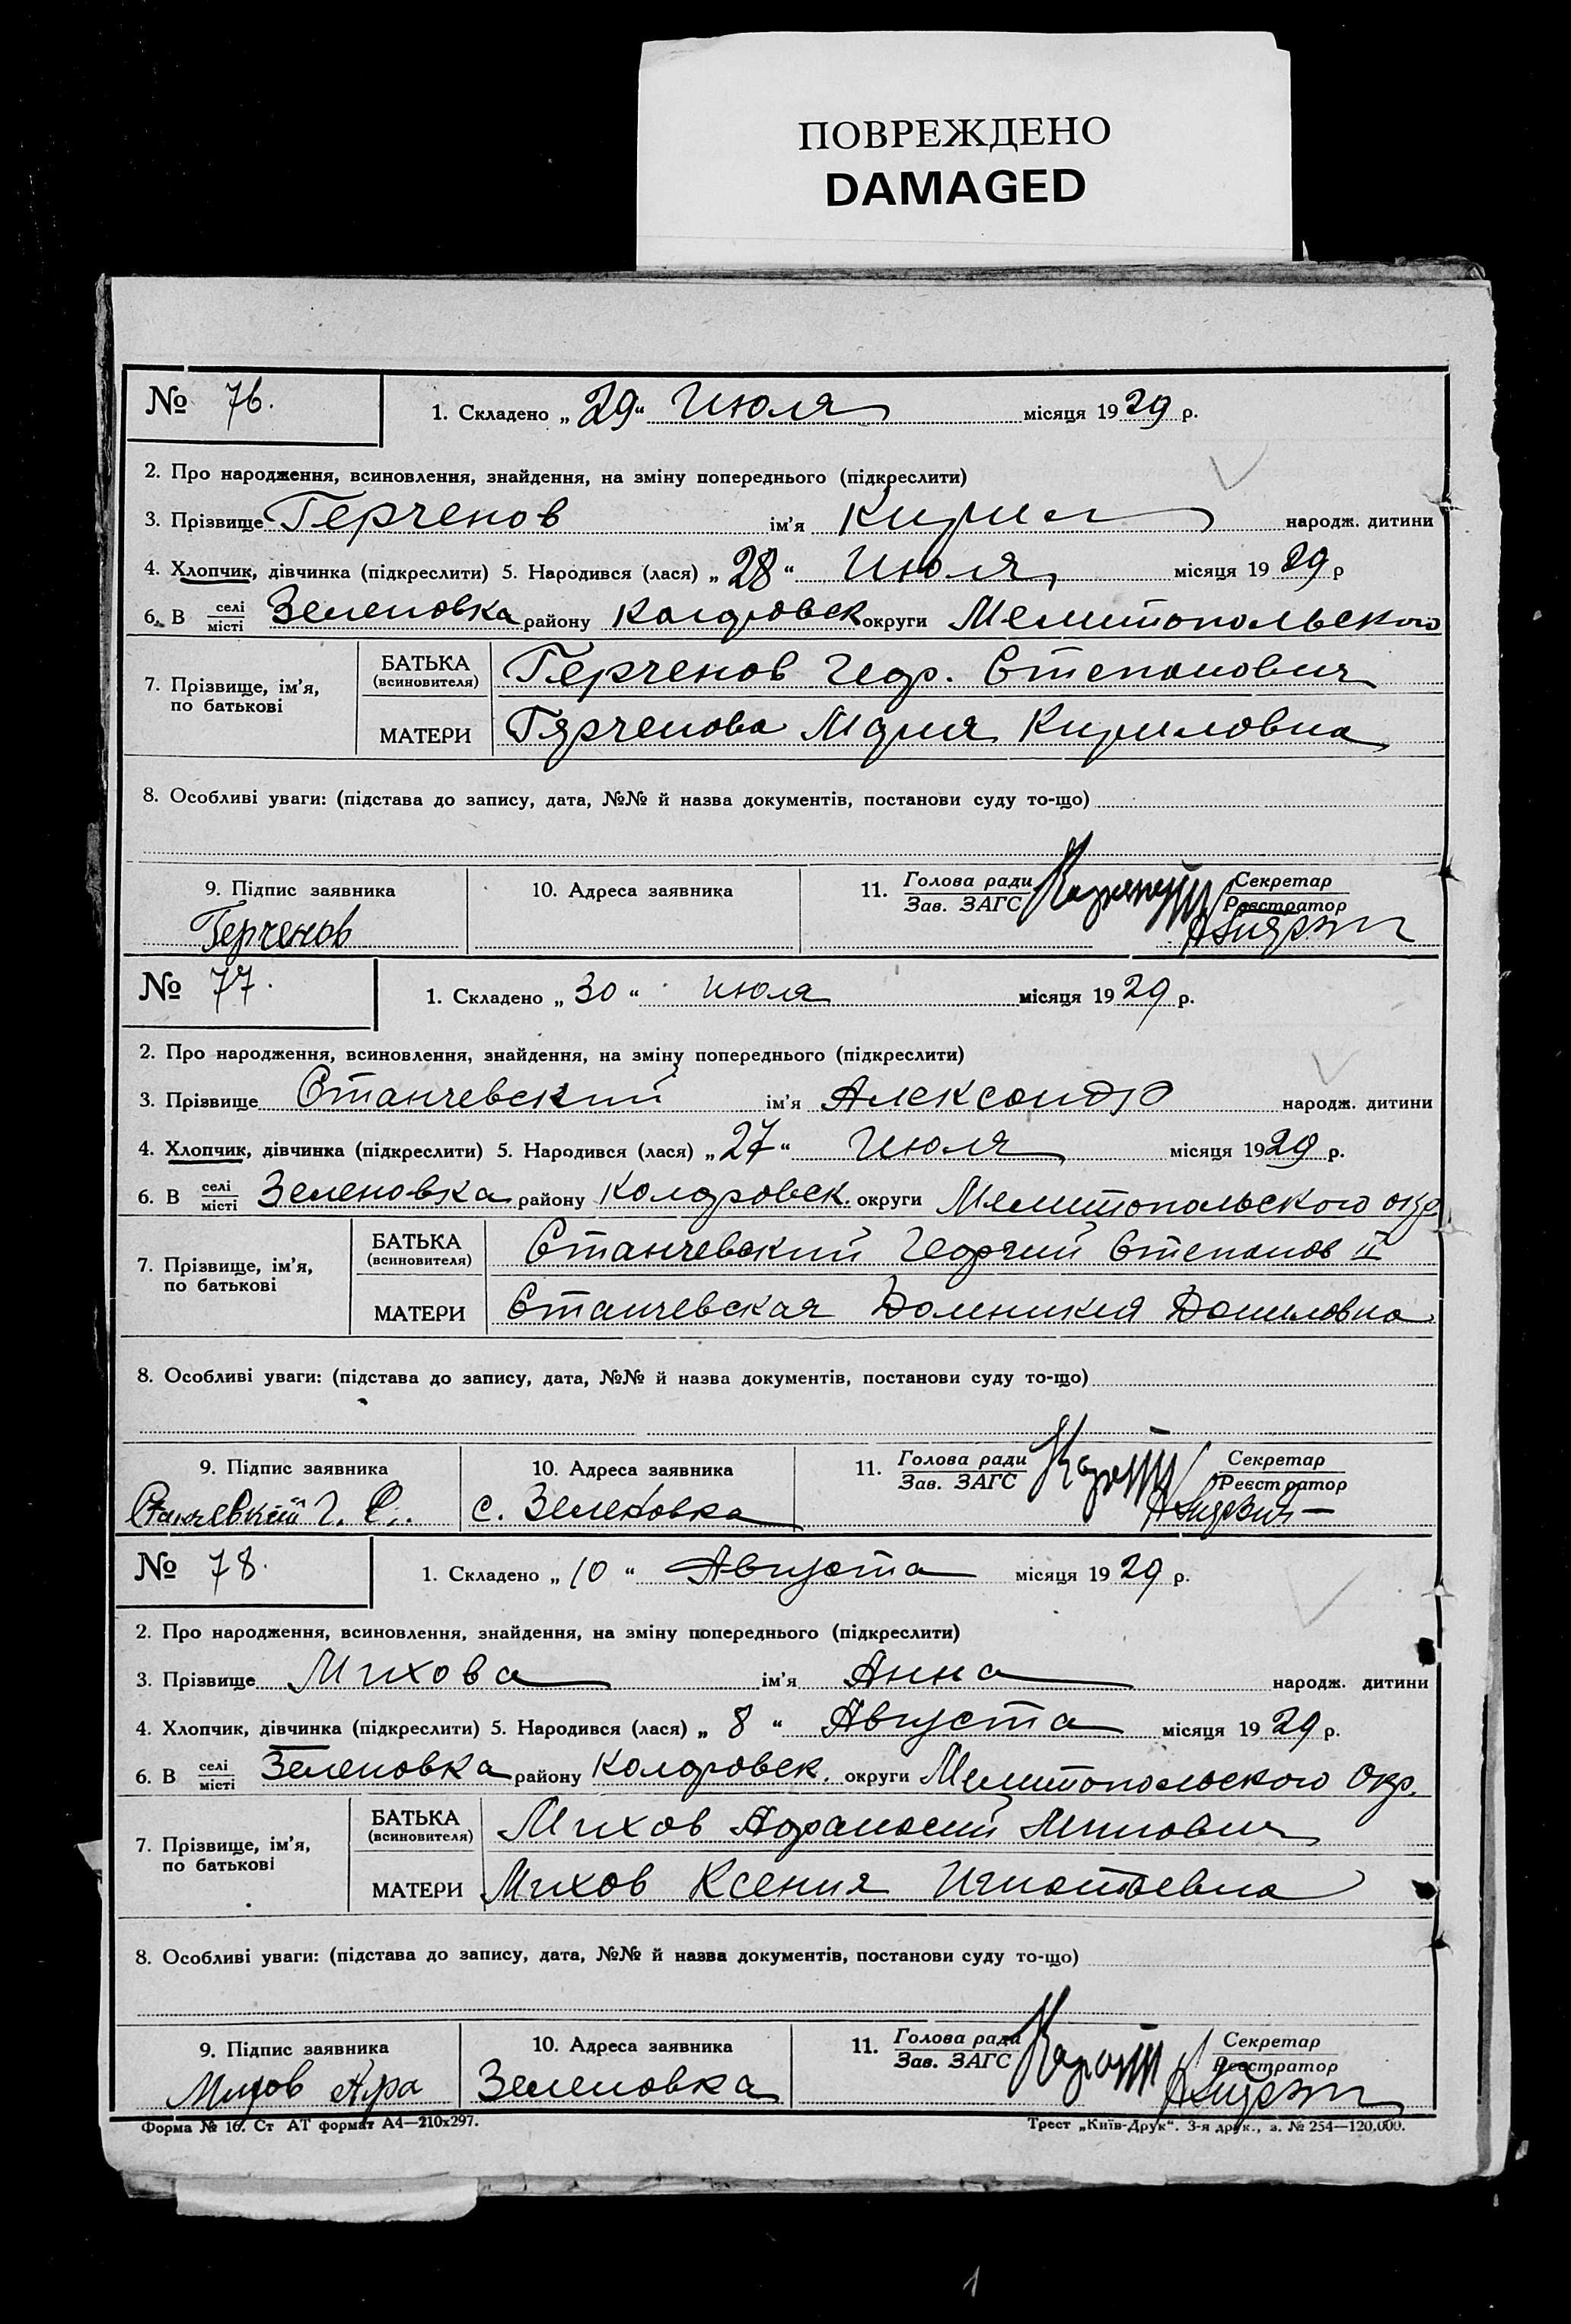 ПОВРЕЖДЕНО
DAMAGED
№ 76.
1. Складено „29“ Июля місяця 1929 р.
2. Про народження, всиновлення, знайдення, на зміну попереднього (підкреслити)
3. Прізвище Герченов ім’я Кирил народж. дитини
4. Хлопчик, дівчинка (підкреслити) 5. Народився (лася) „28“ Июля місяця 1929 р
6. В селі місті Зеленовка району Колдровск округи Мелитопольского
7. Прізвище, ім’я, по батькові
БАТЬКА (всиновителя) Герченов Геор. Степанович
МАТЕРИ Гярченова Мария Кириловна
8. Особливі уваги: (підстава до запису, дата, №№ й назва документів, постанови суду то-що)
9. Підпис заявника 10. Адреса заявника 11. Голова ради Зав. ЗАГС Секретар Реєстратор
Герченов
№ 77.
1. Складено „30“ июля місяця 1929 р.
2. Про народження, всиновлення, знайдення, на зміну попереднього (підкреслити)
3. Прізвище Станчевский ім’я Александр народж. дитини
4. Хлопчик, дівчинка (підкреслити) 5. Народився (лася) „27“ Июля місяця 1929 р.
6. В селі місті Зеленовка району Колдровск. округи Мелитопольского окр
7. Прізвище, ім’я, по батькові
БАТЬКА (всиновителя) Станчевский Георгий Степанов II
МАТЕРИ Станчевская Домникия Даниловна
8. Особливі уваги: (підстава до запису, дата, №№ й назва документів, постанови суду то-що)
9. Підпис заявника 10. Адреса заявника 11. Голова ради Зав. ЗАГС Секретар Реєстратор
Станчевский Г. С. с. Зеленовка
№ 78.
1. Складено „10“ Августа місяця 1929 р.
2. Про народження, всиновлення, знайдення, на зміну попереднього (підкреслити)
3. Прізвище Михова ім’я Анна народж. дитини
4. Хлопчик, дівчинка (підкреслити) 5. Народився (лася) „8“ Августа місяця 1929 р.
6. В селі місті Зеленовка району Колдровск. округи Мелитопольского Окр.
7. Прізвище, ім’я, по батькові
БАТЬКА (всиновителя) Михов Афанасий
МАТЕРИ Михов Ксения Игнатьевна
8. Особливі уваги: (підстава до запису, дата, №№ й назва документів, постанови суду то-що)
9. Підпис заявника 10. Адреса заявника 11. Голова ради Зав. ЗАГС Секретар Реєстратор
Михов Зеленовка
Форма № 16. Ст АТ формат А4—210х297. Трест „Київ-Друк“. 3-я друк., з. № 254—120.000.
1